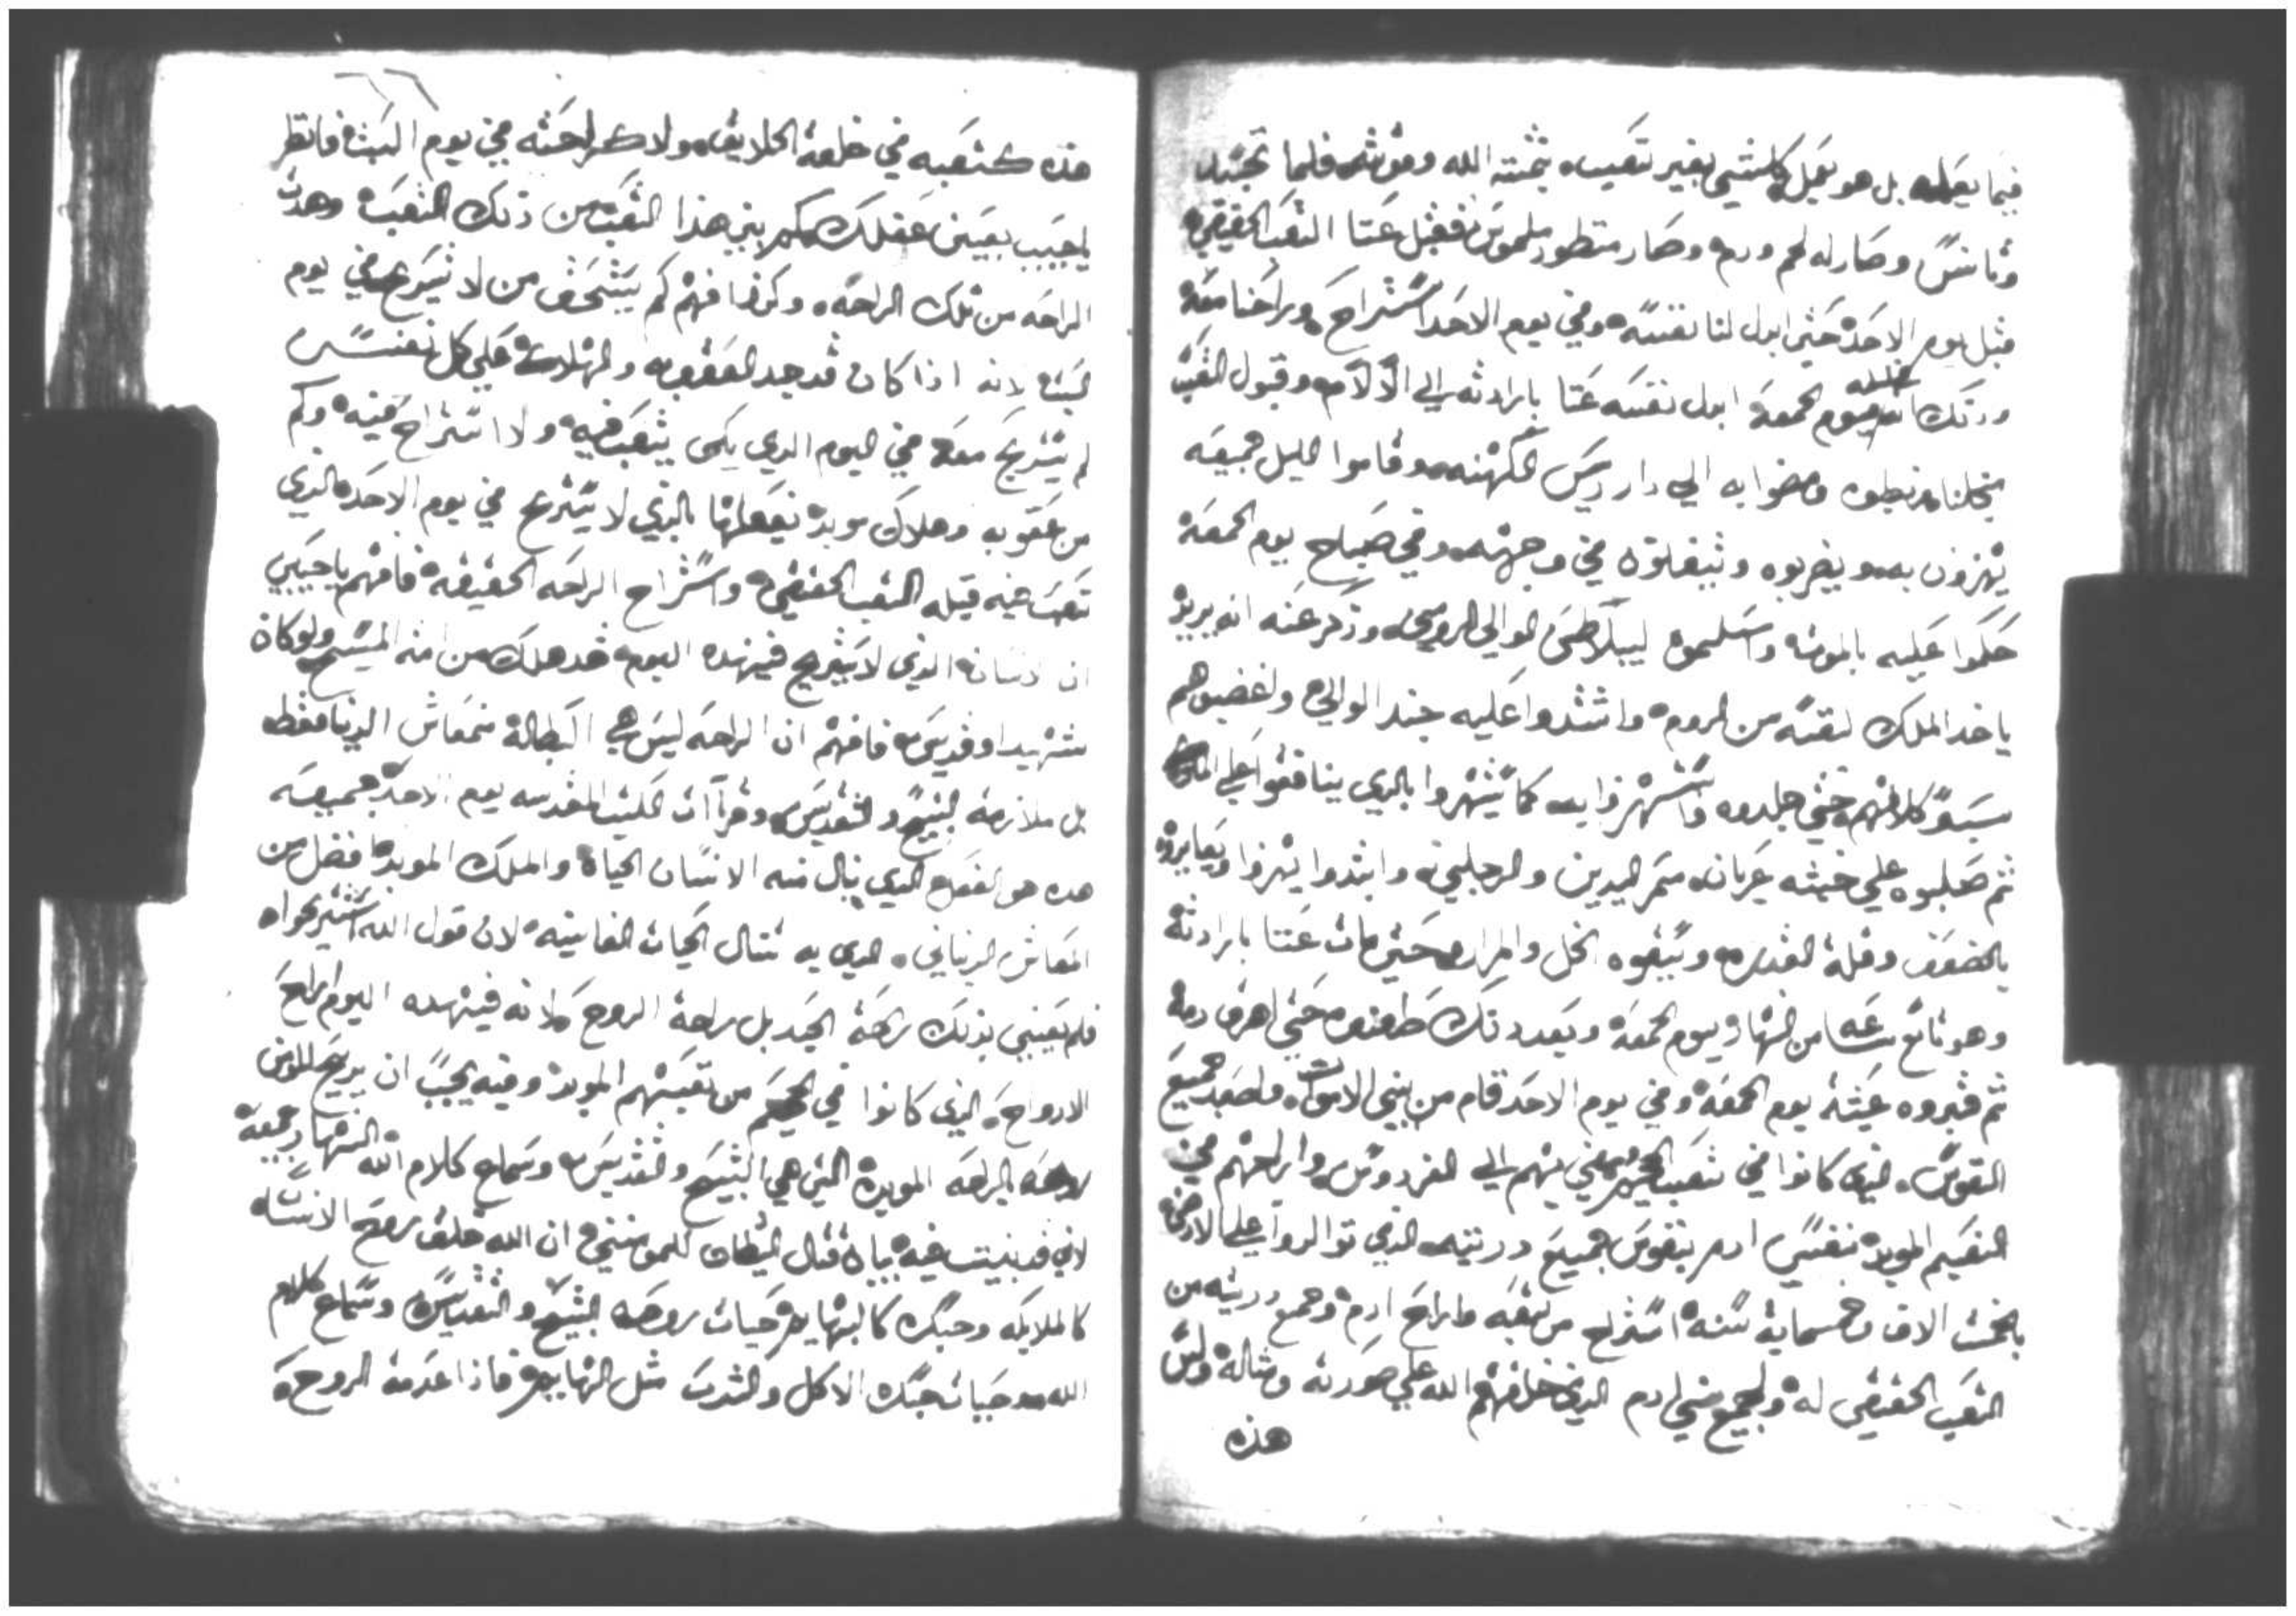 فيما يعمله بل هو يعمل كل شي بغير تعب بمشية الله وقوته فلما تجسد
وتانس وصار له لحم ودم وصار منظور ملموس فقبل عنا التعب الحقيقي
قبل يوم الاحد حتي ابدل لنا نفسه وفي يوم الاحد استراح وراحنا معه
ودلك انه ليلة يوم الجمعه ابدل نفسه عنا بارادته الي الالام وقبول التعب
من اجلنا فربطوه ومضوا به الي دار ريس الكهنه وقاموا الليل جميعه
يهزون به ويضربوه ويتفلوا في وجهه وفي صباح يوم الجمعه
حكموا عليه بالموت واسلموه لبيلاطس الوالي الرومي وذكر عنه انه يريد
ياخد الملك لنفسه من الروم واشتدوا عليه جند الوالي واغضبوهم
بسو كلامهم حتي جلدوه واستهزوا به كما يستهزوا بالدي ينافقوا علي الملك
ثم صلبوه علي خشبه عريان مسمر اليدين والرجلين وابتدوا يهزوا ويعايروه
بالضعف وقلة القدره وسقوه الخل والمراره حتي مات عنا بارادته
وهو تاسع ساعه من النهار يوم الجمعه وبعد دلك طعنوه حتي اهرق دمه
ثم قبروه عشية يوم الجمعه وفي يوم الاحد قام من بين الاموات واصعد جميع
النفوس الدي كانوا في تعب الجحيم ومضي بهم الي الفردوس واراحهم في
النعيم الموبد نفس ادم ونفوس جميع دريته الدي توالدوا علي الارض
بالخمسة الاف وخمسماية سنة استراح من تعبه واراح ادم وجميع دريته من
التعب الحقيقي له ولجميع بني ادم الدي خلقهم الله علي صورته ومثاله وليس
هذه
هذه كتعبه في خلقة الخلايق ولا كراحته في يوم السبت فانظر
يا حبيب بعين عقلك كم بين هذا التعب من ذلك التعب وهذه
الراحه من تلك الراحه وكون فاهم كم يستحق من لا يستريح في يوم
السبت لانه اذا كان قد جد العقوبه والهلاك علي كل نفس
لم تستريح معه في اليوم الدي لم يتعب فيه ولا استراح فيه وكم
من عقوبه وهلاك موبد يفعلها بالذي لا يستريح في يوم الاحد الذي
تعب فيه قبله التعب الحقيقي واستراح الراحه الحقيقه فافهم يا حبيبي
ان الانسان الذي لا يستريح في هذه اليوم قد هلك من امة المسيح ولو كان
شهيد او قديس فافهم ان الراحه ليس هي البطاله من معاش الدنيا فقط
بل ملازمة التسبيح والتقديس وقراات الكتب المقدسه يوم الاحد جميعه
هده هو الفعل الدي ينال منه الانسان الحياة والملك الموبد افضل من
المعاش الدنياني الدي به تنال الحيات الفانيه لان قول الله استريحوا
فلم يعني بذلك راحة الجسد بل راحة الروح لانه في هده اليوم اراح
الارواح الذي كانوا في الجحيم من تعبهم الموبد وفيه يجب ان يريح المومن
روحه بالراحه الموبده التي هي التسبيح والتقديس وسماع كلام الله النهار جميعه
لاني قد بنيت فيه بيان قتال الشيطان للمومنين ان الله خلق روح الانسان
كالملايكه وجسده كالبهايم حيات روحه التسبيح والتقديس وسماع كلام
الله وحيات جسده الاكل والشرب مثل البهايم فاذا عدمة الروح